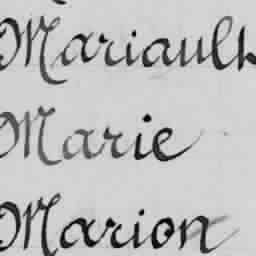 Mariault
Marie
Marion